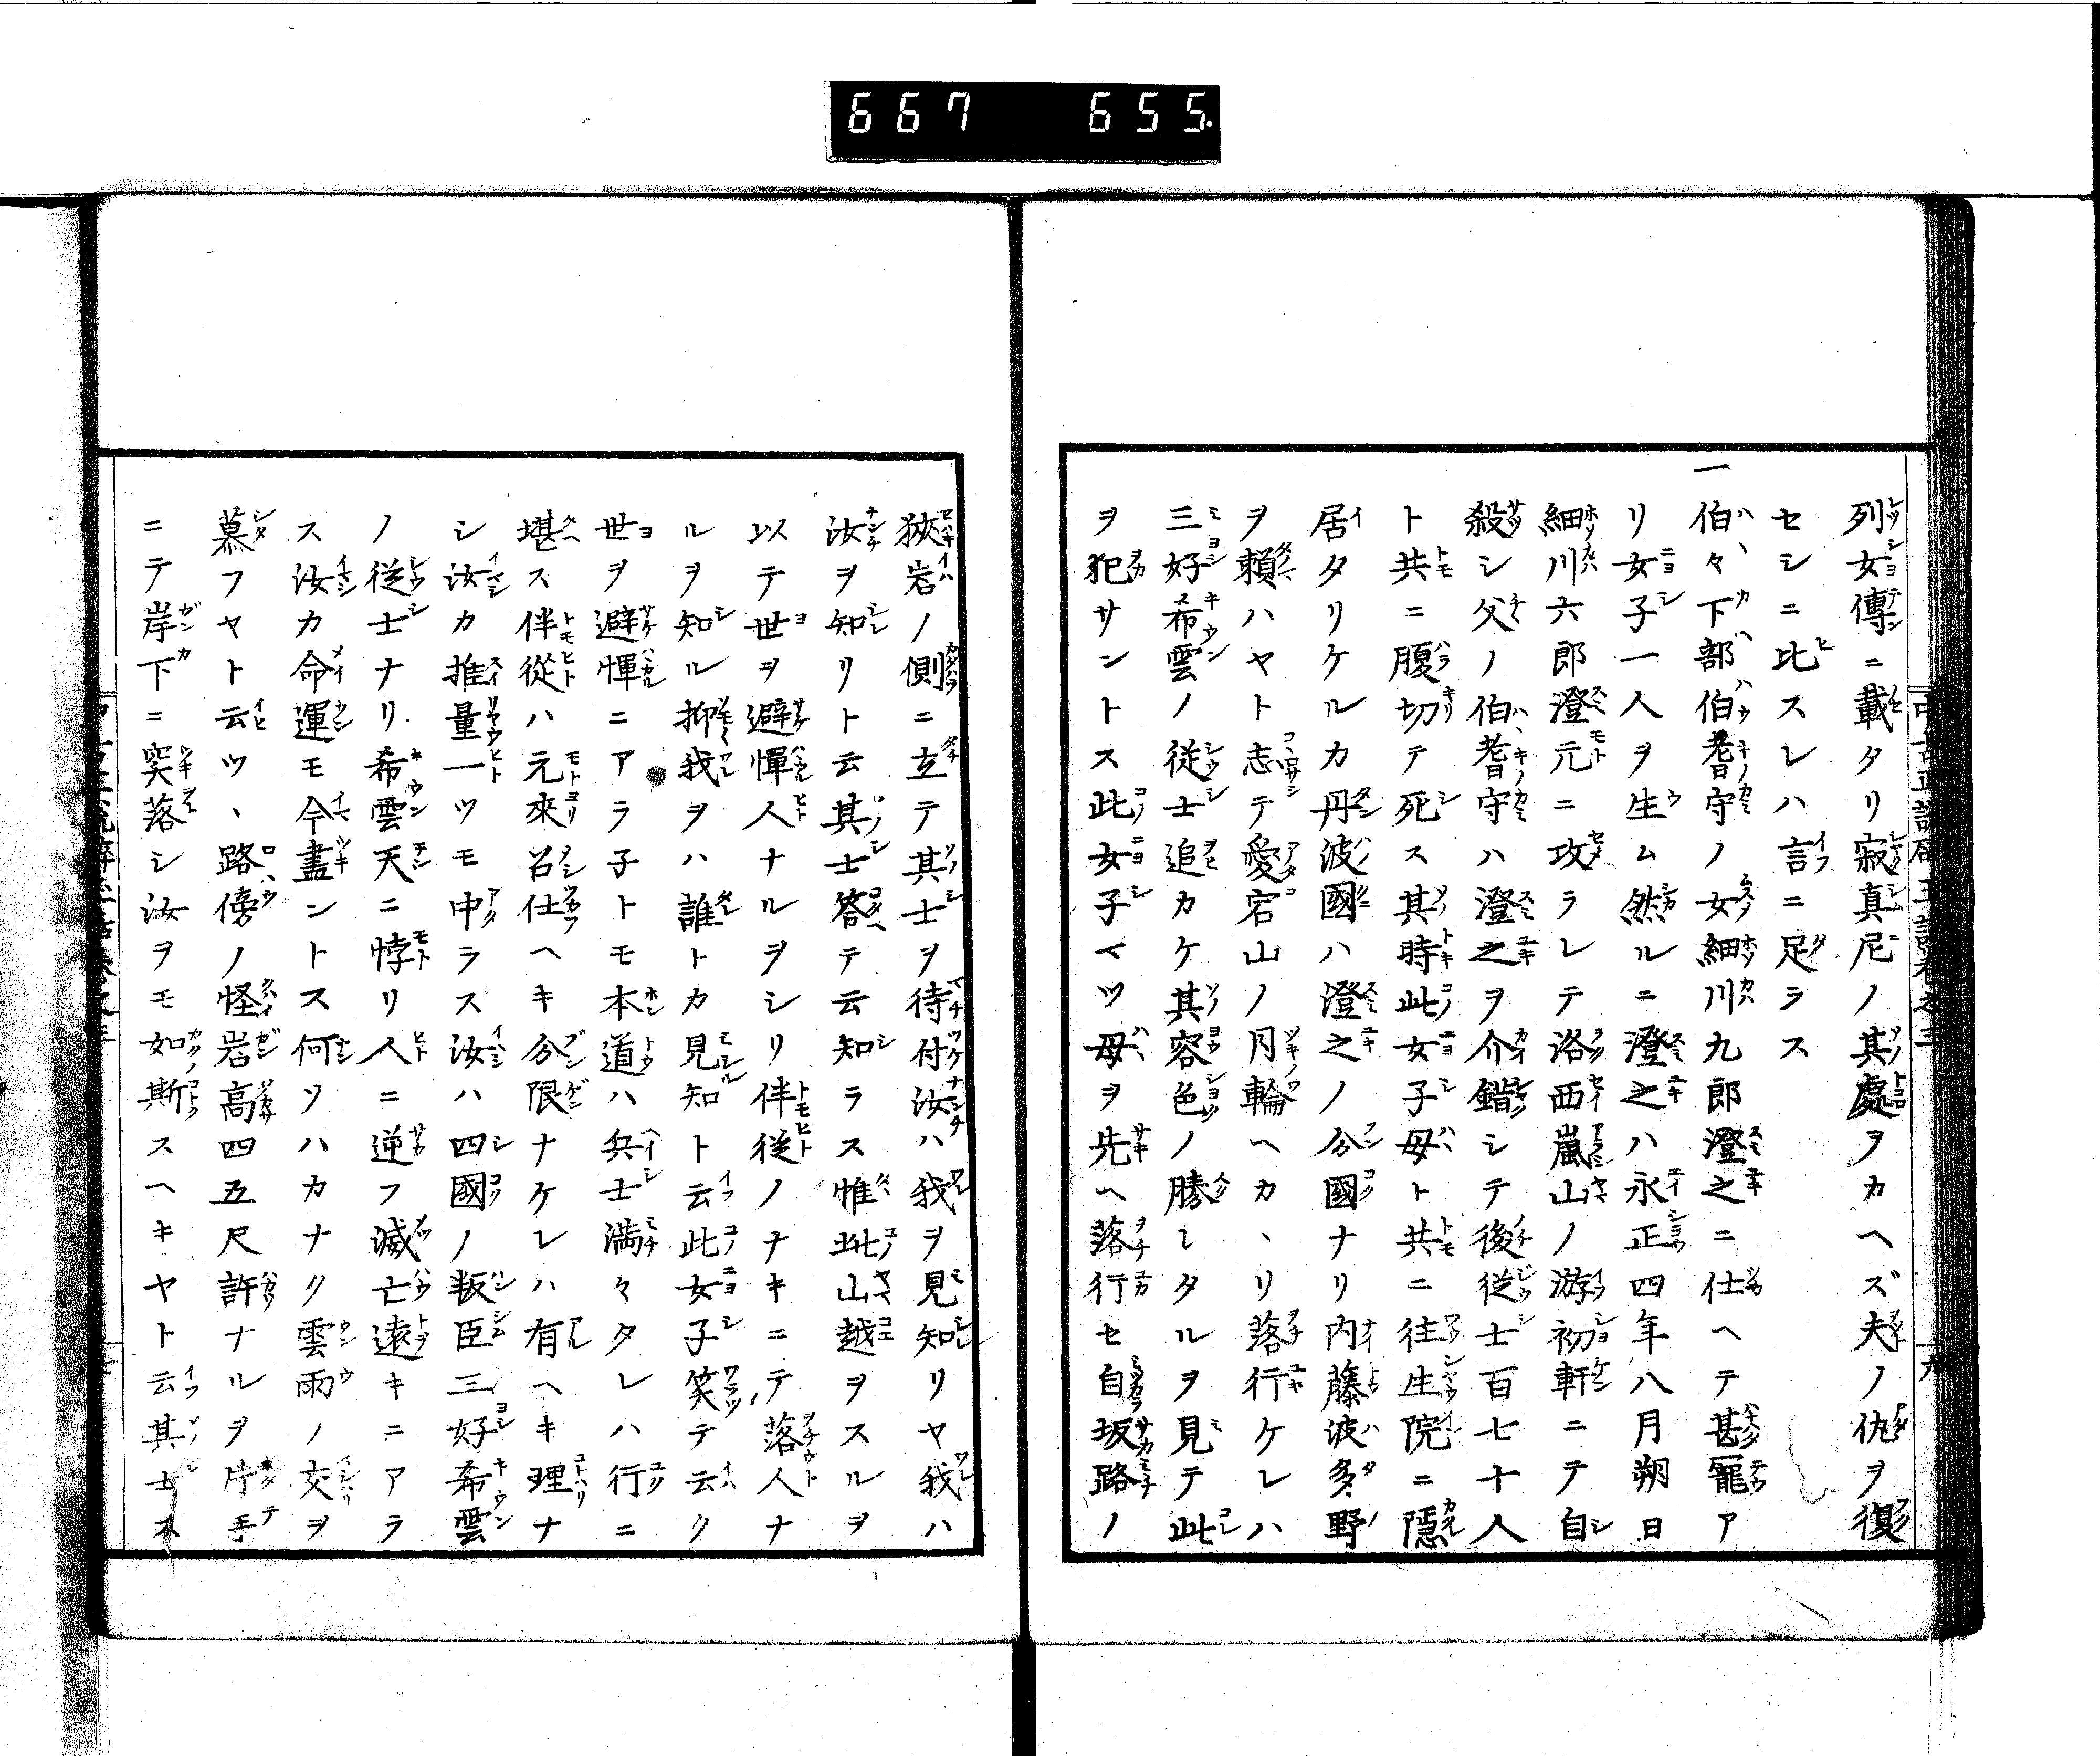 667 655
列女傳ニ載タリ寂真尼ノ其處ヲカヘズ夫ノ仇ヲ復
セシニ比スレハ言ニ足ラス
一伯々下部伯耆守ノ女細川九郎澄之ニ仕ヘテ甚寵ア
リ女子一人ヲ生ム然ルニ澄之ハ永正四年八月朔日
細川六郎澄元ニ攻ラレテ洛西嵐山ノ游初軒ニテ自
殺シ父ノ伯耆守ハ澄之ヲ介錯シテ後従士百七十人
ト共ニ腹切テ死ス其時此女子母ト共ニ往生院ニ隱
居タリケルカ丹波國ハ澄之ノ分國ナリ内藤波多野
ヲ賴ハヤト志テ愛宕山ノ月輪ヘカヽリ落行ケレハ
三好希雲ノ従士追カケ其容色ノ勝レタルヲ見テ此
ヲ犯サントス此女子マツ母ヲ先ヘ落行セ自坂路ノ
狹岩ノ側ニ立テ其士ヲ待付汝ハ我ヲ見知リヤ我ハ
汝ヲ知リト云其士答テ云知ラス惟此山越ヲスルヲ
以テ世ヲ避憚人ナルヲシリ伴従ノナキニテ落人ナ
ルヲ知ル抑我ヲハ誰トカ見知ト云此女子笑テ云ク
世ヲ避憚ニアラ子トモ本道ハ兵士満々タレハ行ニ
堪ス伴從ハ元來召仕ヘキ分限ナケレハ有ヘキ理ナ
シ汝カ推量一ツモ中ラス汝ハ四國ノ叛臣三好希雲
ノ従士ナリ希雲天ニ悖リ人ニ逆フ滅亡遠キニアラ
ス汝カ命運モ今盡ントス何ソハカナク雲雨ノ交ヲ
慕フヤト云ツヽ路傍ノ怪岩高四五尺許ナルヲ片手
ニテ岸下ニ突落シ汝ヲモ如斯スヘキヤト云其士